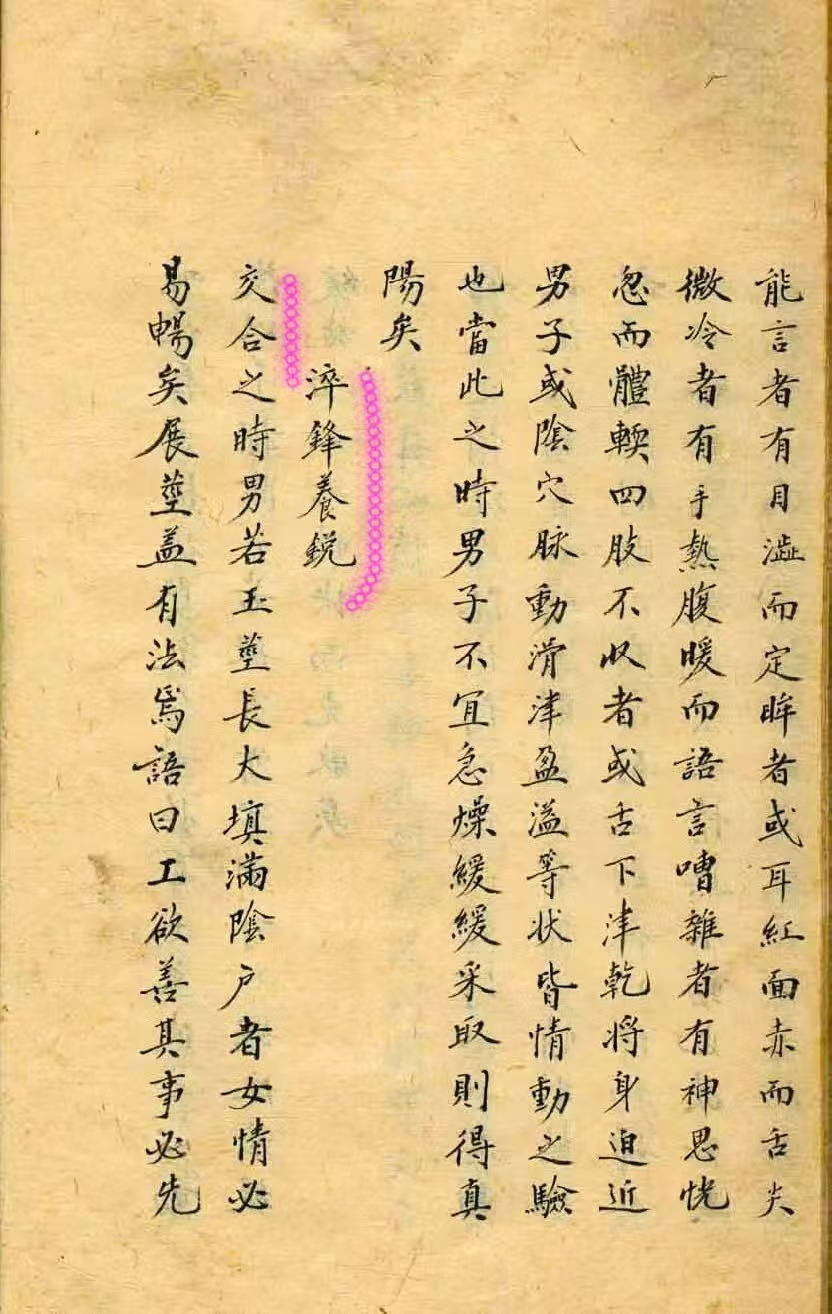 能言者有目澁而定眸者或耳紅面赤而舌尖
微冷者有手熱腹暖而語言嘈雜者有神思恍
忽而體輭四肢不収者或舌下津乾將身迫近
男子或陰穴脉動滑津盈溢等狀皆情動之驗
也當此之時男子不宜急燥緩緩采取則得真
陽矣
淬鋒養銳
交合之時男若玉莖長大填滿陰户者女情必
易暢矣展莖盖有法焉語曰工欲善其事必先